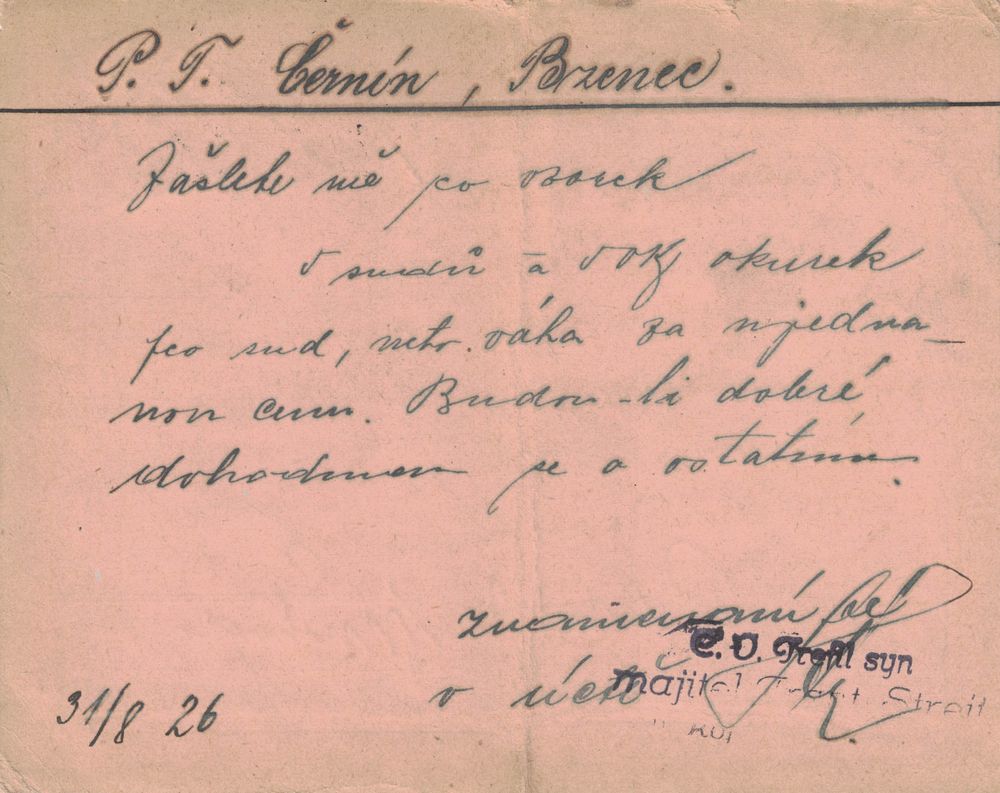 P. T. Černín, Bzenec.
Zašlete mě co vzorek
5 sudů a 5 okurek
fco sud, neto váha za ujedna-
nou cenu. Budou-li dobré
dohodnem se o ostatním.
znamenám
v úctě
C. V. Trefil syn
majitel Streit
31/8 26